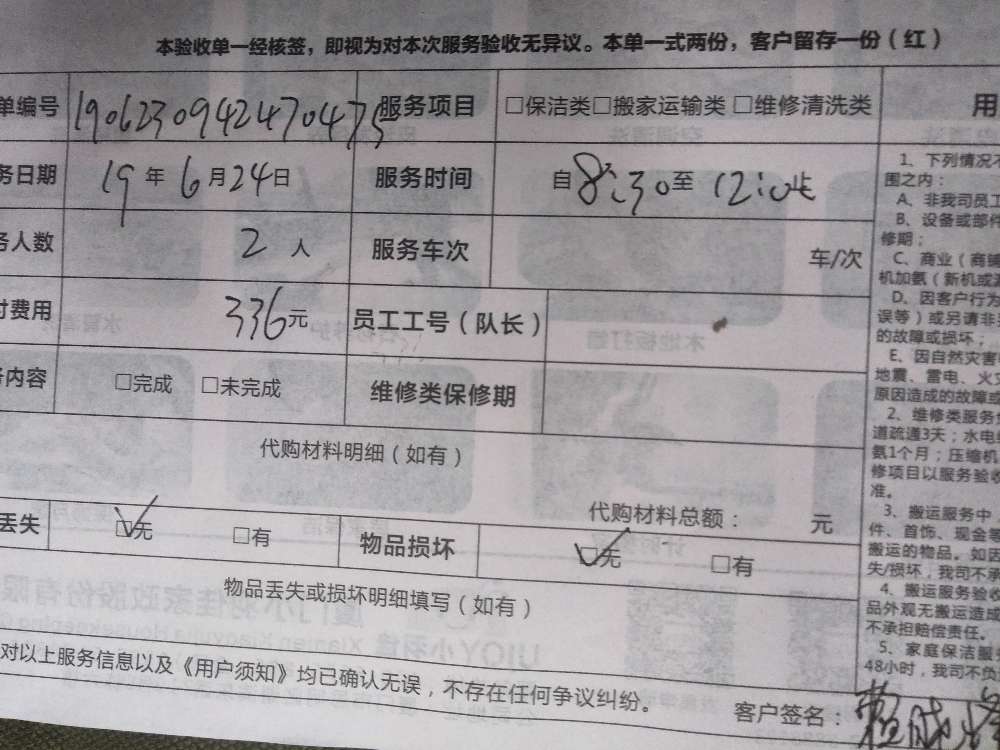 本验收单一经核签，即视为对本次服务验收无异议。本单一式两份，客户留存一份（红）
单编号 19062309424704475 服务项目 □保洁类□搬家运输类 □维修清洗类 用
务日期 19年6月24日 服务时间 自8:30至12:0止
务人数 2人 服务车次 车/次
付费用 336元 员工工号（队长）
务内容 □完成 □未完成 维修类保修期
代购材料明细（如有）
代购材料总额： 元
丢失 ☑无 □有 物品损坏 ☑无 □有
物品丢失或损坏明细填写（如有）
对以上服务信息以及《用户须知》均已确认无误，不存在任何争议纠纷。
客户签名：
1、下列情况不
围之内：
A、非我司员工
B、设备或部件
修期；
C、商业（商铺
机加氨（新机或
D、因客户行为
误等）或另请非
的故障或损坏；
E、因自然灾害
地震、雷电、火灾
原因造成的故障或
2、维修类服务
道疏通3天；水电
氨1个月；压缩机
修项目以服务验收
准。
3、搬运服务中
件、首饰、现金等
搬运的物品。如因
失/损坏，我司不承
4、搬运服务验收
品外观无搬运造成
不承担赔偿责任。
5、家庭保洁服务
48小时，我司不负